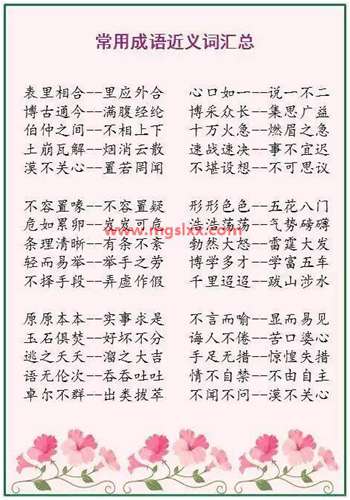 常用成语近义词汇总
表里相合--里应外合 心口如一--说一不二
博古通今--满腹经纶 博采众长--集思广益
伯仲之间--不相上下 十万火急--燃眉之急
土崩瓦解--烟消云散 速战速决--事不宜迟
漠不关心--置若罔闻 不堪设想--不可思议
不容置喙--不容置疑 形形色色--五花八门
危如累卵--岌岌可危 浩浩荡荡--气势磅礴
www.mgslxx.com
条理清晰--有条不紊 勃然大怒--雷霆大发
轻而易举--举手之劳 博学多才--学富五车
不择手段--弄虚作假 千里迢迢--跋山涉水
原原本本--实事求是 不言而喻--显而易见
玉石俱焚--好坏不分 诲人不倦--苦口婆心
逃之夭夭--溜之大吉 手足无措--惊惶失措
语无伦次--吞吞吐吐 情不自禁--不由自主
卓尔不群--出类拔萃 不闻不问--漠不关心